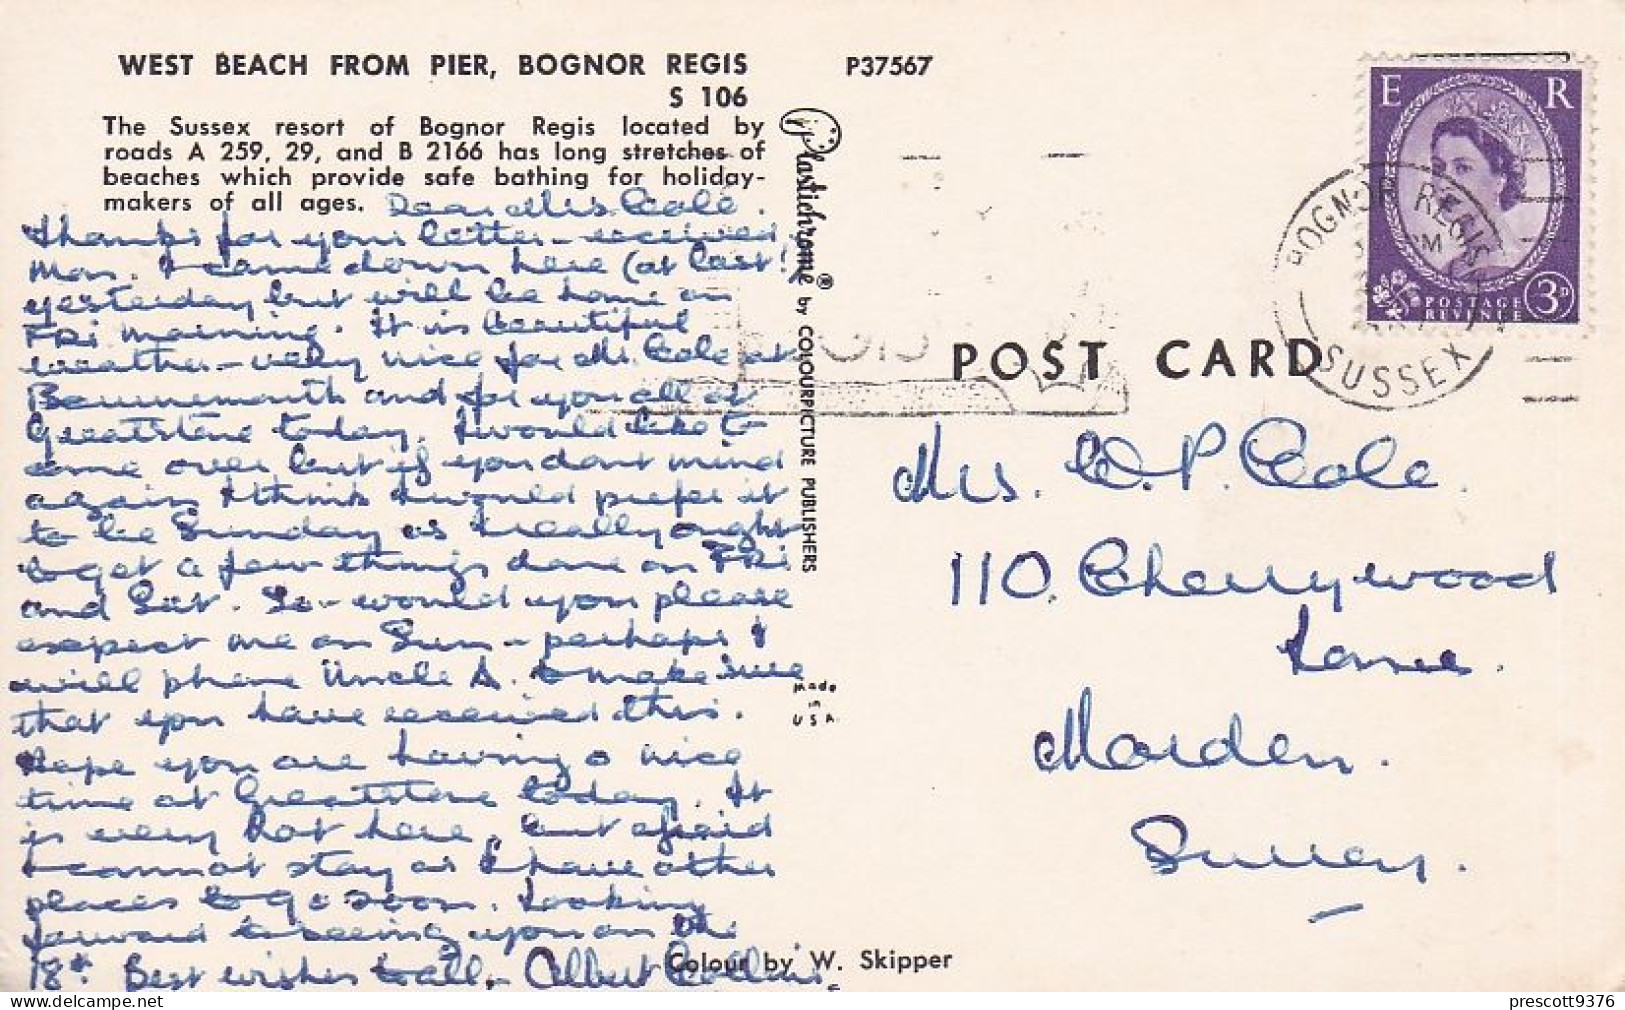 WEST BEACH FROM PIER, BOGNOR REGIS
S 106
P37567
The Sussex resort of Bognor Regis located by
roads A 259, 29, and B 2166 has long stretches of
beaches which provide safe bathing for holiday-
makers of all ages.
Dear Mrs. Cole.
Thanks for your letter - received
Mon. I came down here (at last!
yesterday but will be home on
FRi morning. It is beautiful
weather - very nice for Mr. Cole at
Bournemouth and for you all at
Greatstone today. I would like to
come over but if you dont mind
again I think I would prefer it
to be Sunday as I really ought
to get a few things done on FRi
and Sat. So - would you please
expect me on Sun - perhaps I
will phone Uncle A. to make sure
that you have received this.
Hope you are having a nice
time at Greatstone today. It
is very hot here, but afraid
I cannot stay as I have other
places to go soon. Looking
forward to seeing you on the
18th. Best wishes to all, - Albert Collins.
Plastichrome ® by COLOURPICTURE PUBLISHERS
Made
in
USA
POST CARD
E R
POSTAGE
REVENUE
3D
BOGNOR REGIS
SUSSEX
PM
Mrs. W. P. Cole.
110. Cherrywood
Lane.
Morden.
Surrey.
Colour by W. Skipper
delcampe.net
prescott9376